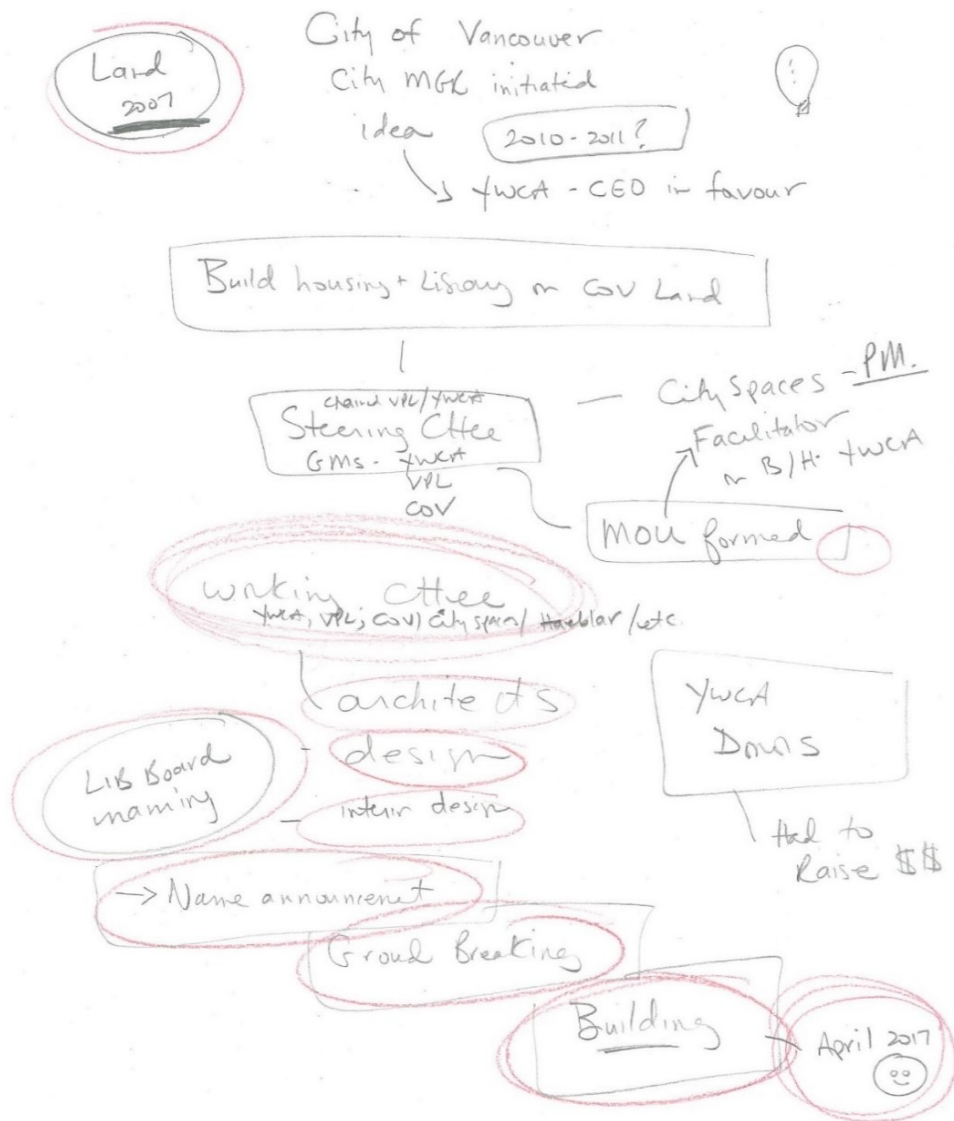 Land
2007
City of Vancouver
City MGR initiated
idea
2010-2011?
YWCA - CEO in favour
Build housing + Library on COV Land
Chaired VPL/YWCA
Steering Cttee
GMs - YWCA
VPL
COV
City Spaces - PM.
Facilitator
B/H. YWCA
MOU formed
working cttee
YWCA, VPL, COV, City spaces / /etc.
architects
design
interior design
LIB Board
naming
YWCA
Donors
Had to
Raise $$
→ Name announcemet
Groud Breaking
Building
April 2017